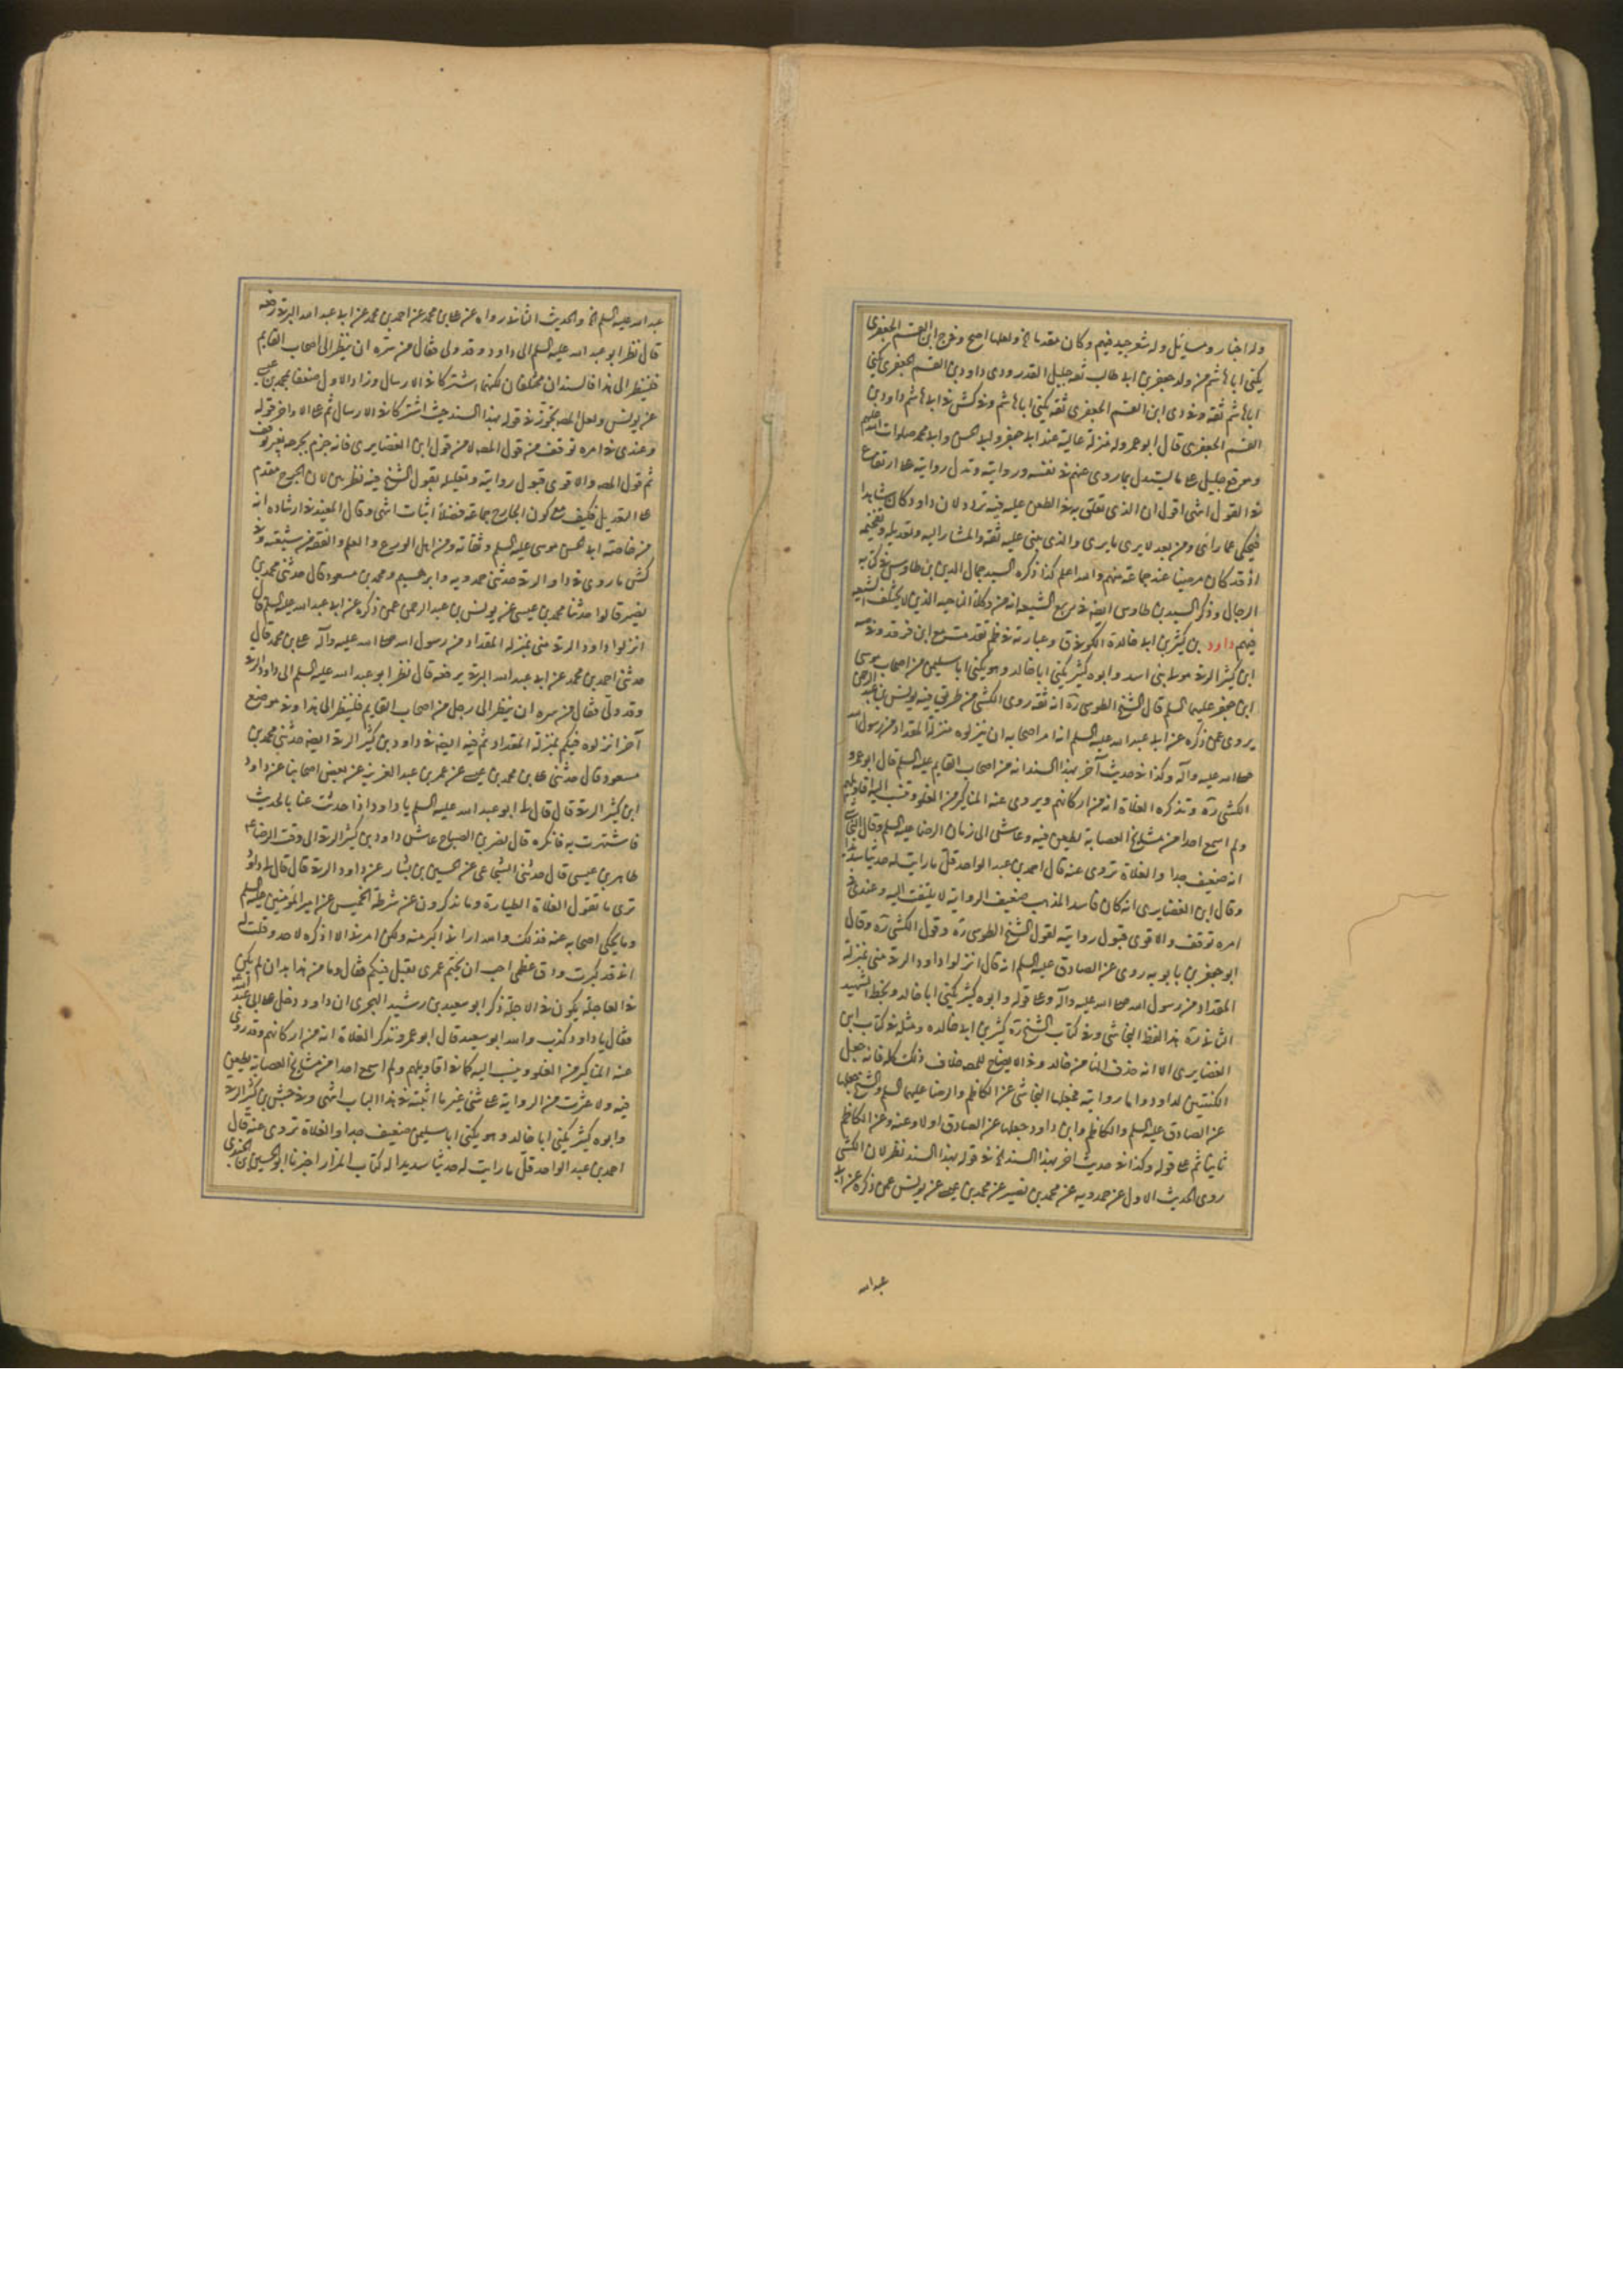 وله اخبار ومسائل وله شعر جيد فيهم وكان مقدما الخ ولعلها اصح وفي ج ابن القسم الجعفري
يكنى اباهاشم من ولد جعفر بن ابي طالب ثقه جليل القدر وفي دى داود بن القسم الجعفري يكنى
اباهاشم ثقه وفي دى ابن القسم الجعفري ثقه يكنى اباهاشم وفي كش في ابي هاشم داود بن
القسم الجعفري قال ابو عمرو له منزلة عالية عند ابي جعفر وابي الحسن وابي محمد صلوات الله عليهم
وموقع جليل على ما يستدل بما روى عنهم في نفسه وروايته وتدل روايته على ارتفاع
في القول انتهى اقول ان الذي تعلق به في الطعن عليه فيه تردد لان داود كان شاهدا
فيحكى عما رأى ومن بعد لا يرى ما يرى والذي يبنى عليه ثقه والمشار اليه وتعديله وتفخيمه
اذ قد كان مرضيا عند جماعة منهم والله اعلم كذا ذكره السيد جمال الدين بن طاوس في كتابه
الرجال وذكر السيد بن طاوس ايضه في ربيع الشيعه انه من وكلاء الناحيه الذين لا يختلف الشيعه
فيهم داود بن كثير بن ابي خالدة الكوفي ق وعبارته في ظم تقدمت مع ابن فرقد وفي صه
ابن كثير الرقي مولى بني اسد وابوه كثير يكنى ابا خالد وهو يكنى ابا سليمن من اصحاب موسى
ابن جعفر عليهما السلم قال الشيخ الطوسي ره انه ثقه روى الكشي من طريق فيه يونس بن عبد الرحمن
يروى عمن ذكره عن ابي عبد الله عليه السلم انه امر اصحابه ان ينزلوه منزلة المقداد من رسول الله
صلى الله عليه وآله وكذا في حديث آخر بهذا السند انه من اصحاب القايم عليه السلم قال ابو عمرو
الكشي ره وتذكره الغلاة انه من اركانهم ويروى عنه المناكير من الغلو وتنسب اليه اقاويلهم
ولم اسمع احدا من مشايخ العصابة يطعن فيه وعاش الى زمان الرضا عليه السلم وقال النجاشي
انه ضعيف جدا والغلاة تروى عنه قال احمد بن عبد الواحد قل ما رايت له حديثا سديدا
وقال ابن الغضايري انه كان فاسد المذهب ضعيف الرواية لا يلتفت اليه وعندي في
امره توقف والاقوى قبول روايته لقول الشيخ الطوسي ره وقول الكشي ره وقال
ابو جعفر بن بابويه روى عن الصادق عليه السلم انه قال انزلوا داود الرقي مني بمنزلة
المقداد من رسول الله صلى الله عليه وآله وعلى قوله وابوه كثير يكنى ابا خالد وبخط الشهيد
الثاني ره هذا لفظ النجاشي وفي كتاب الشيخ ره كثير بن ابي خالده ومثله في كتاب ابن
الغضايري الا انه حذف التاء من خالد وفي الايضاح للمصه خلاف ذلك كله فانه جعل
الكنيتين لداود واما روايته فجعلها النجاشي عن الكاظم والرضا عليهما السلم والشيخ جعلها
عن الصادق عليه السلم والكاظم وابن داود جعلها عن الصادق اولا وعنه وعن الكاظم
ثانيا ثم على قوله وكذا في حديث اخر بهذا السند الخ في قوله بهذا السند نظر لان الكشي
روى الحديث الاول عن حمدويه عن محمد بن نصير عن محمد بن عيسى عن يونس عمن ذكره عن ابي
عبد الله
عبد الله عليه السلم الخ والحديث الثاني رواه عن علي بن محمد عن احمد بن محمد عن ابي عبد الله البرقي رفعه
قال نظر ابو عبد الله عليه السلم الى داود وقد ولى فقال من سره ان ينظر الى اصحاب القايم
فلينظر الى هذا فالسندان مختلفان لكنهما اشتركا في الارسال وزاد الاول ضعفا بمحمد بن عيسى
عن يونس ولعل المصه تجوز في قوله بهذا السند حيث اشتركا في الارسال ثم على الاواخر قوله
وعندي في امره توقف من قول المصه لا من قول ابن الغضايري فانه جزم بجرحه بغير توقف
ثم قول المصه والاقوى قبول روايته وتعليله بقول الشيخ فيه نظر بين لان الجرح مقدم
على التعديل فكيف مع كون الجارح جماعة فضلا اثبات انتهى وقال المفيد في ارشاده انه
من خاصة ابي الحسن موسى عليه السلم وثقاته ومن اهل الورع والعلم والفقه من شيعته وفي
كش ما روى في داود الرقي حدثني حمدويه وابرهيم ومحمد بن مسعود قال حدثني محمد بن
نصير قالوا حدثنا محمد بن عيسى عن يونس بن عبد الرحمن عمن ذكره عن ابي عبد الله عليه السلم قال
انزلوا داود الرقي مني بمنزلة المقداد من رسول الله صلى الله عليه وآله علي بن محمد قال
حدثني احمد بن محمد عن ابي عبد الله البرقي يرفعه قال نظر ابو عبد الله عليه السلم الى داود الرقي
وقد ولى فقال من سره ان ينظر الى رجل من اصحاب القايم فلينظر الى هذا وفي موضع
آخر انزلوه فيكم بمنزلة المقداد ثم فيه ايضه في داود بن كثير الرقي ايضه حدثني محمد بن
مسعود قال حدثني علي بن محمد بن عيسى عن عمر بن عبد العزيز عن بعض اصحابنا عن داود
ابن كثير الرقي قال قال لي ابو عبد الله عليه السلم يا داود اذا حدثت عنا بالحديث
فاشتهرت به فانكره قال نصر بن الصباح عاش داود بن كثير الرقي الى وقت الرضا ع
طاهر بن عيسى قال حدثني الشجاعي عن الحسين بن بشار عن داود الرقي قال قال لي داود
ترى ما تقول الغلاة الطيارة وما يذكرون عن شرطة الخميس عن امير المؤمنين عليه السلم
وما يحكى اصحابه عنه فذلك والله اراني اكبر منه ولكن امرني الا اذكره لاحد وقلت له
اني قد كبرت ودق عظمي احب ان يختم عمري بقتل فيكم فقال وما من هذا بد ان لم يكن
في العاجلة يكون في الاجلة ذكر ابو سعيد بن رشيد الهجري ان داود دخل على ابي عبد الله
فقال يا داود كذب والله ابو سعيد قال ابو عمرو وتذكر الغلاة انه من اركانهم وقد روى
عنه المناكير من الغلو وينسب اليه كانه اقاويلهم ولم اسمع احدا من مشايخ العصابة يطعن
فيه ولا عثرت من الرواية على شئ غير ما اثبته في هذا الباب انتهى وفي جش بن كثير الرقي
وابوه كثير يكنى ابا خالد وهو يكنى ابا سليمن ضعيف جدا والغلاة تروى عنه قال
احمد بن عبد الواحد قل ما رايت له حديثا سديدا له كتاب المزار اخبرنا ابو الحسين بن الجندي